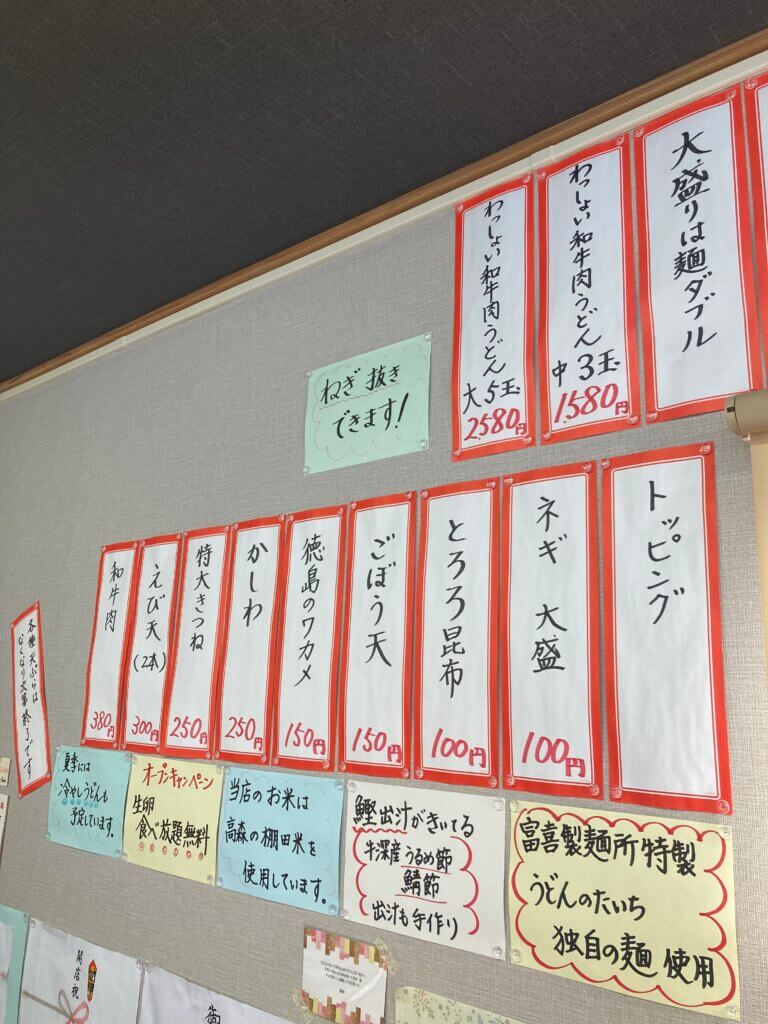 大盛りは麺ダブル
わっしょい和牛肉うどん
中3玉
1580円
わっしょい和牛肉うどん
大5玉
2580円
ねぎ抜き
できます!
トッピング
ネギ 大盛
100円
とろろ昆布
100円
ごぼう天
150円
徳島のワカメ
150円
かしわ
250円
特大きつね
250円
えび天(2本)
300円
和牛肉
380円
各種天ぷらは
なくなり次第終了です
富喜製麺所特製
うどんのたいち
独自の麺使用
鰹出汁がきいてる
牛深産うるめ節
鯖節
出汁も手作り
当店のお米は
高森の棚田米を
使用しています。
オープンキャンペーン
生卵
食べ放題無料
夏季には
冷やしうどんも
予定しています。
開店祝
御